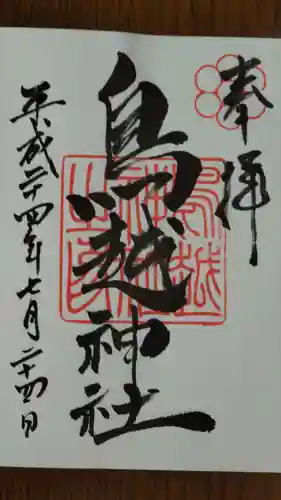 奉拝
鳥越神社
平成二十四年七月二十四日
鳥越神社之印